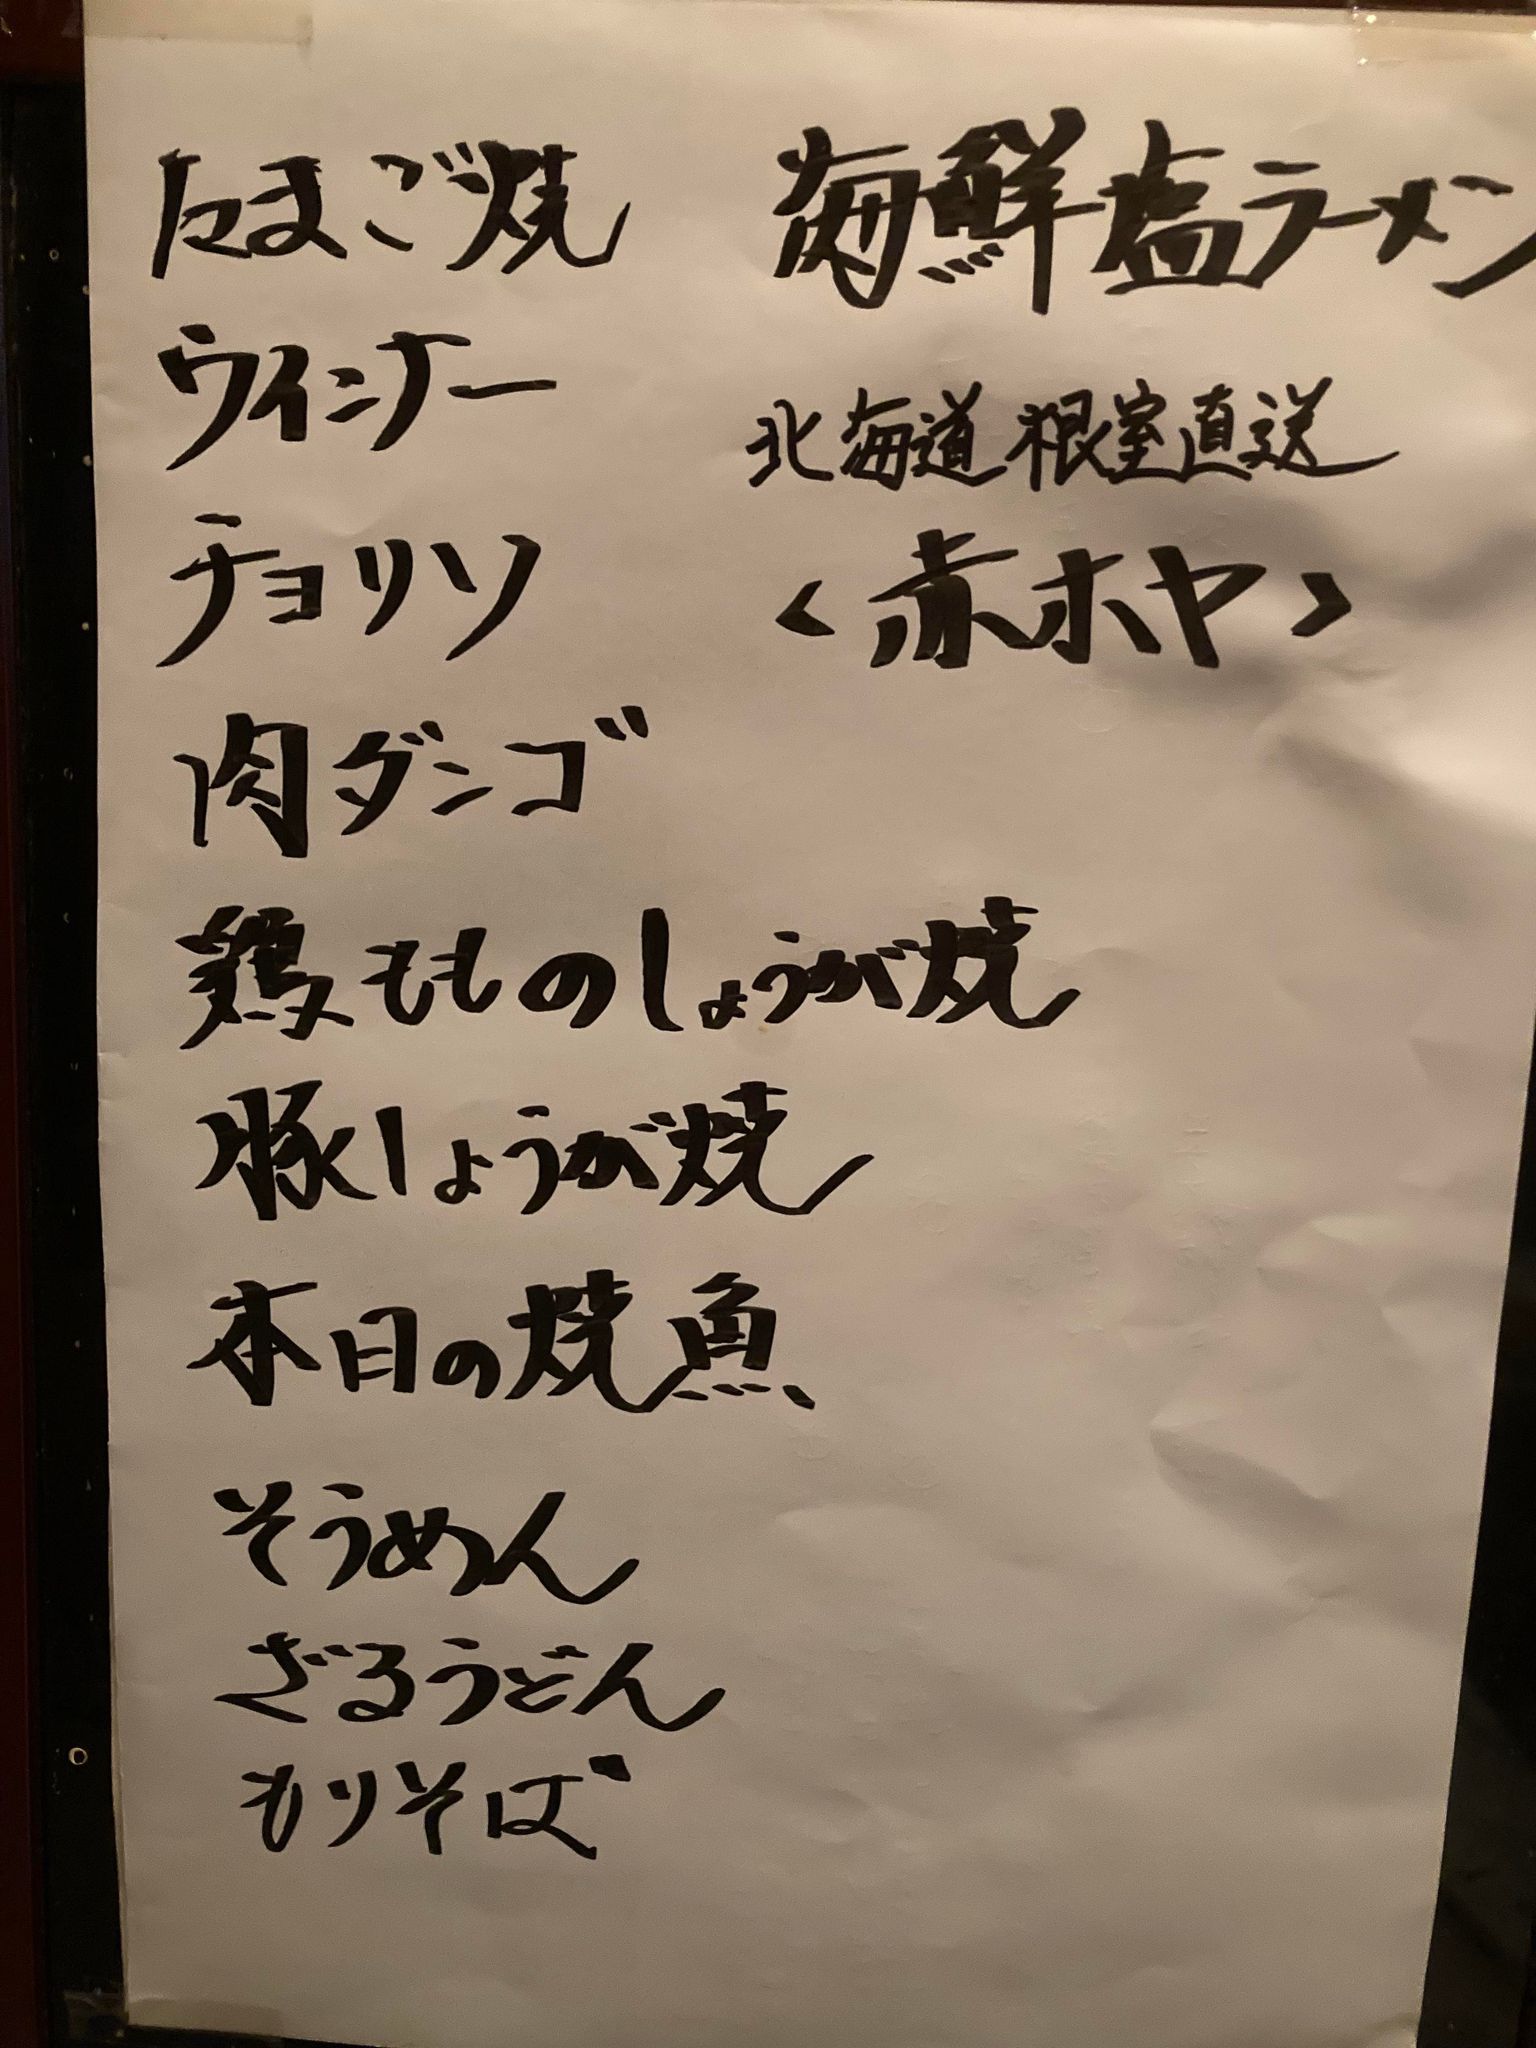 たまご焼
ウインナー
チョリソ
肉ダンゴ
鶏もものしょうが焼
豚しょうが焼
本日の焼魚
そうめん
ざるうどん
もりそば
海鮮塩ラーメン
北海道根室直送
<赤ホヤ>